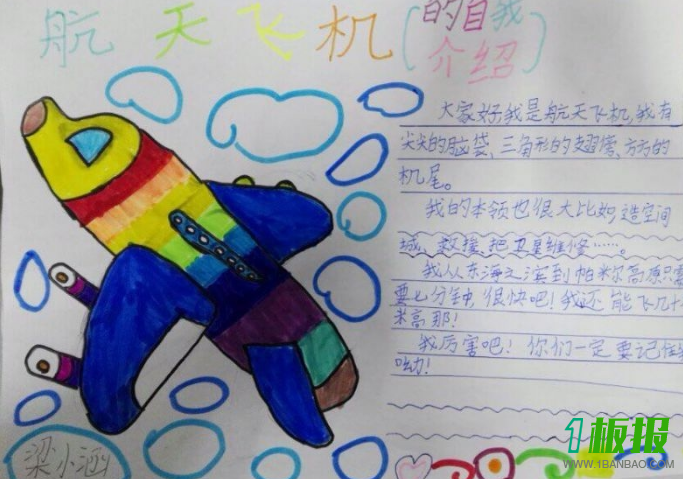 航天飞机(的自我
介绍)
大家好,我是航天飞机,我有
尖尖的脑袋、三角形的翅膀、方方的
机尾。
我的本领也很大比如造空间
城、救援、把卫星维修……。
我从东海之滨到帕米尔高原只需
要七分钟,很快吧!我还能飞几十
米高那!
我厉害吧!你们一定要记住我
呦!
梁小涵
1板报
WWW.1BANBAO.COM